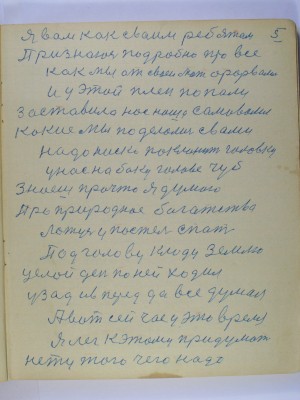 5
Я вам как сваим ребятам
Признаюся подробно про все
как мы от своих мот оторвали
и у этой плен попали
Заставила нас наща самаволия
Какие мы подняли с вами
надо писко поклинит головку
у нас на боку голове чуб
Знаеш про что я думаю
Про природное богатства
Ложус у постел спат
Под голову кладу Землю
целой ден по ней ходил
узад ив перед да все думал
А вот сей час у это время
Я лег к этому придумат
нету того чего надо